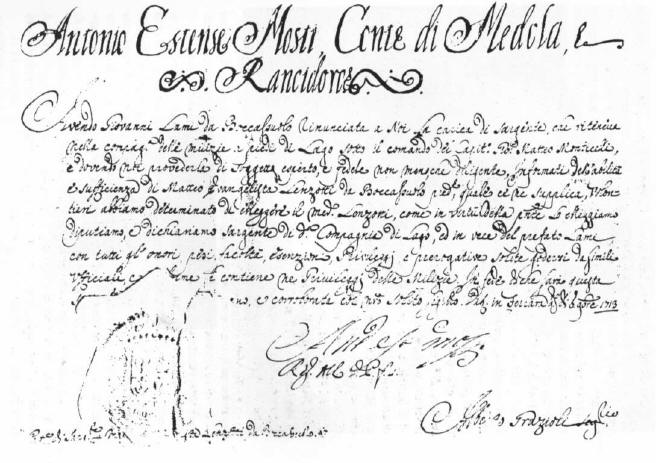 Antonio Estense Mosti, Conte di Medola, e
Rancidoro
Avendo Giovanni Lami da Boccassuolo rinunciata a Noi la carica di Sargente, che riteneva
nella compag.ª delle milizie a piedi di Lago sotto il comando del Capit.º Matteo Monticelli,
e dovendo noi provederla di Soggetto esperto, e fedele non men che diligente, informati dell'abilità
e sufficienza di Matteo Evangelista Lenzotti da Boccassuolo pred.º, quale ce ne supplica, Volon-
tieri abbiamo determinato di eleggere il med.º Lenzotti, come in virtù della pnte Lo eleggiamo
diputiamo, e dichiariamo Sargente di d.ª Compagnia di Lago, ed in vece del prefato Lami,
con tutti gl'onori, pesi, facoltà, esenzioni, Privilegj, e prerogative solite godersi da simili
Ufficiali, e si contiene ne Privilegj delle Milizie. In fede di che sarà questa
e corroborata col nro solito sigillo 1713
Ant.º Est. Mosti
Grazioli
Lenzotti da Boccassuolo